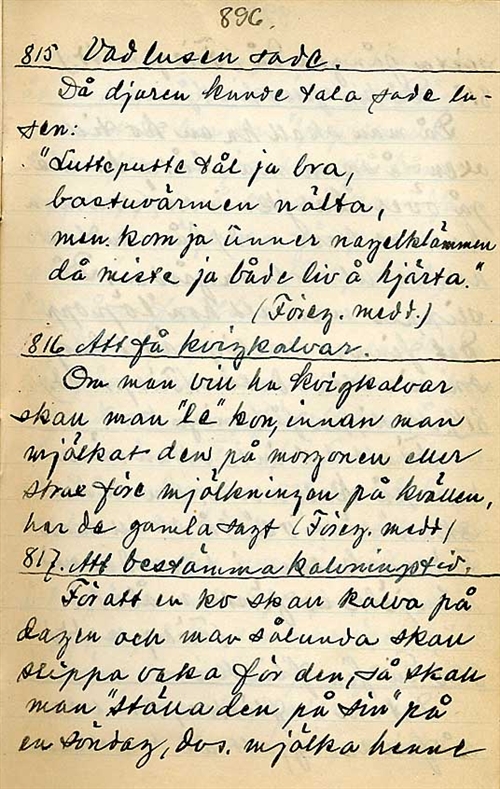 896.
815 Vad lusen sade.
Då djuren kunde tala sade lu-
sen:
"Lutteputte tål ja bra,
bastuvärmen nälta,
men kom ja ünner nagelklämmen
då miste ja både liv å hjärta."
(Föreg. medd.)
816 Att få kvigkalvar.
Om man vill ha kvigkalvar
skall man "le" kon, innan man
mjölkat den på morgonen eller
strax före mjölkningen på kvällen,
har de gamla sagt (Föreg. medd)
817. Att bestämma kalvningstid.
För att en ko skall kalva på
dagen och man sålunda skall
slippa vaka för den, så skall
man "ställa den på sin" på
en söndag, dvs. mjölka henne